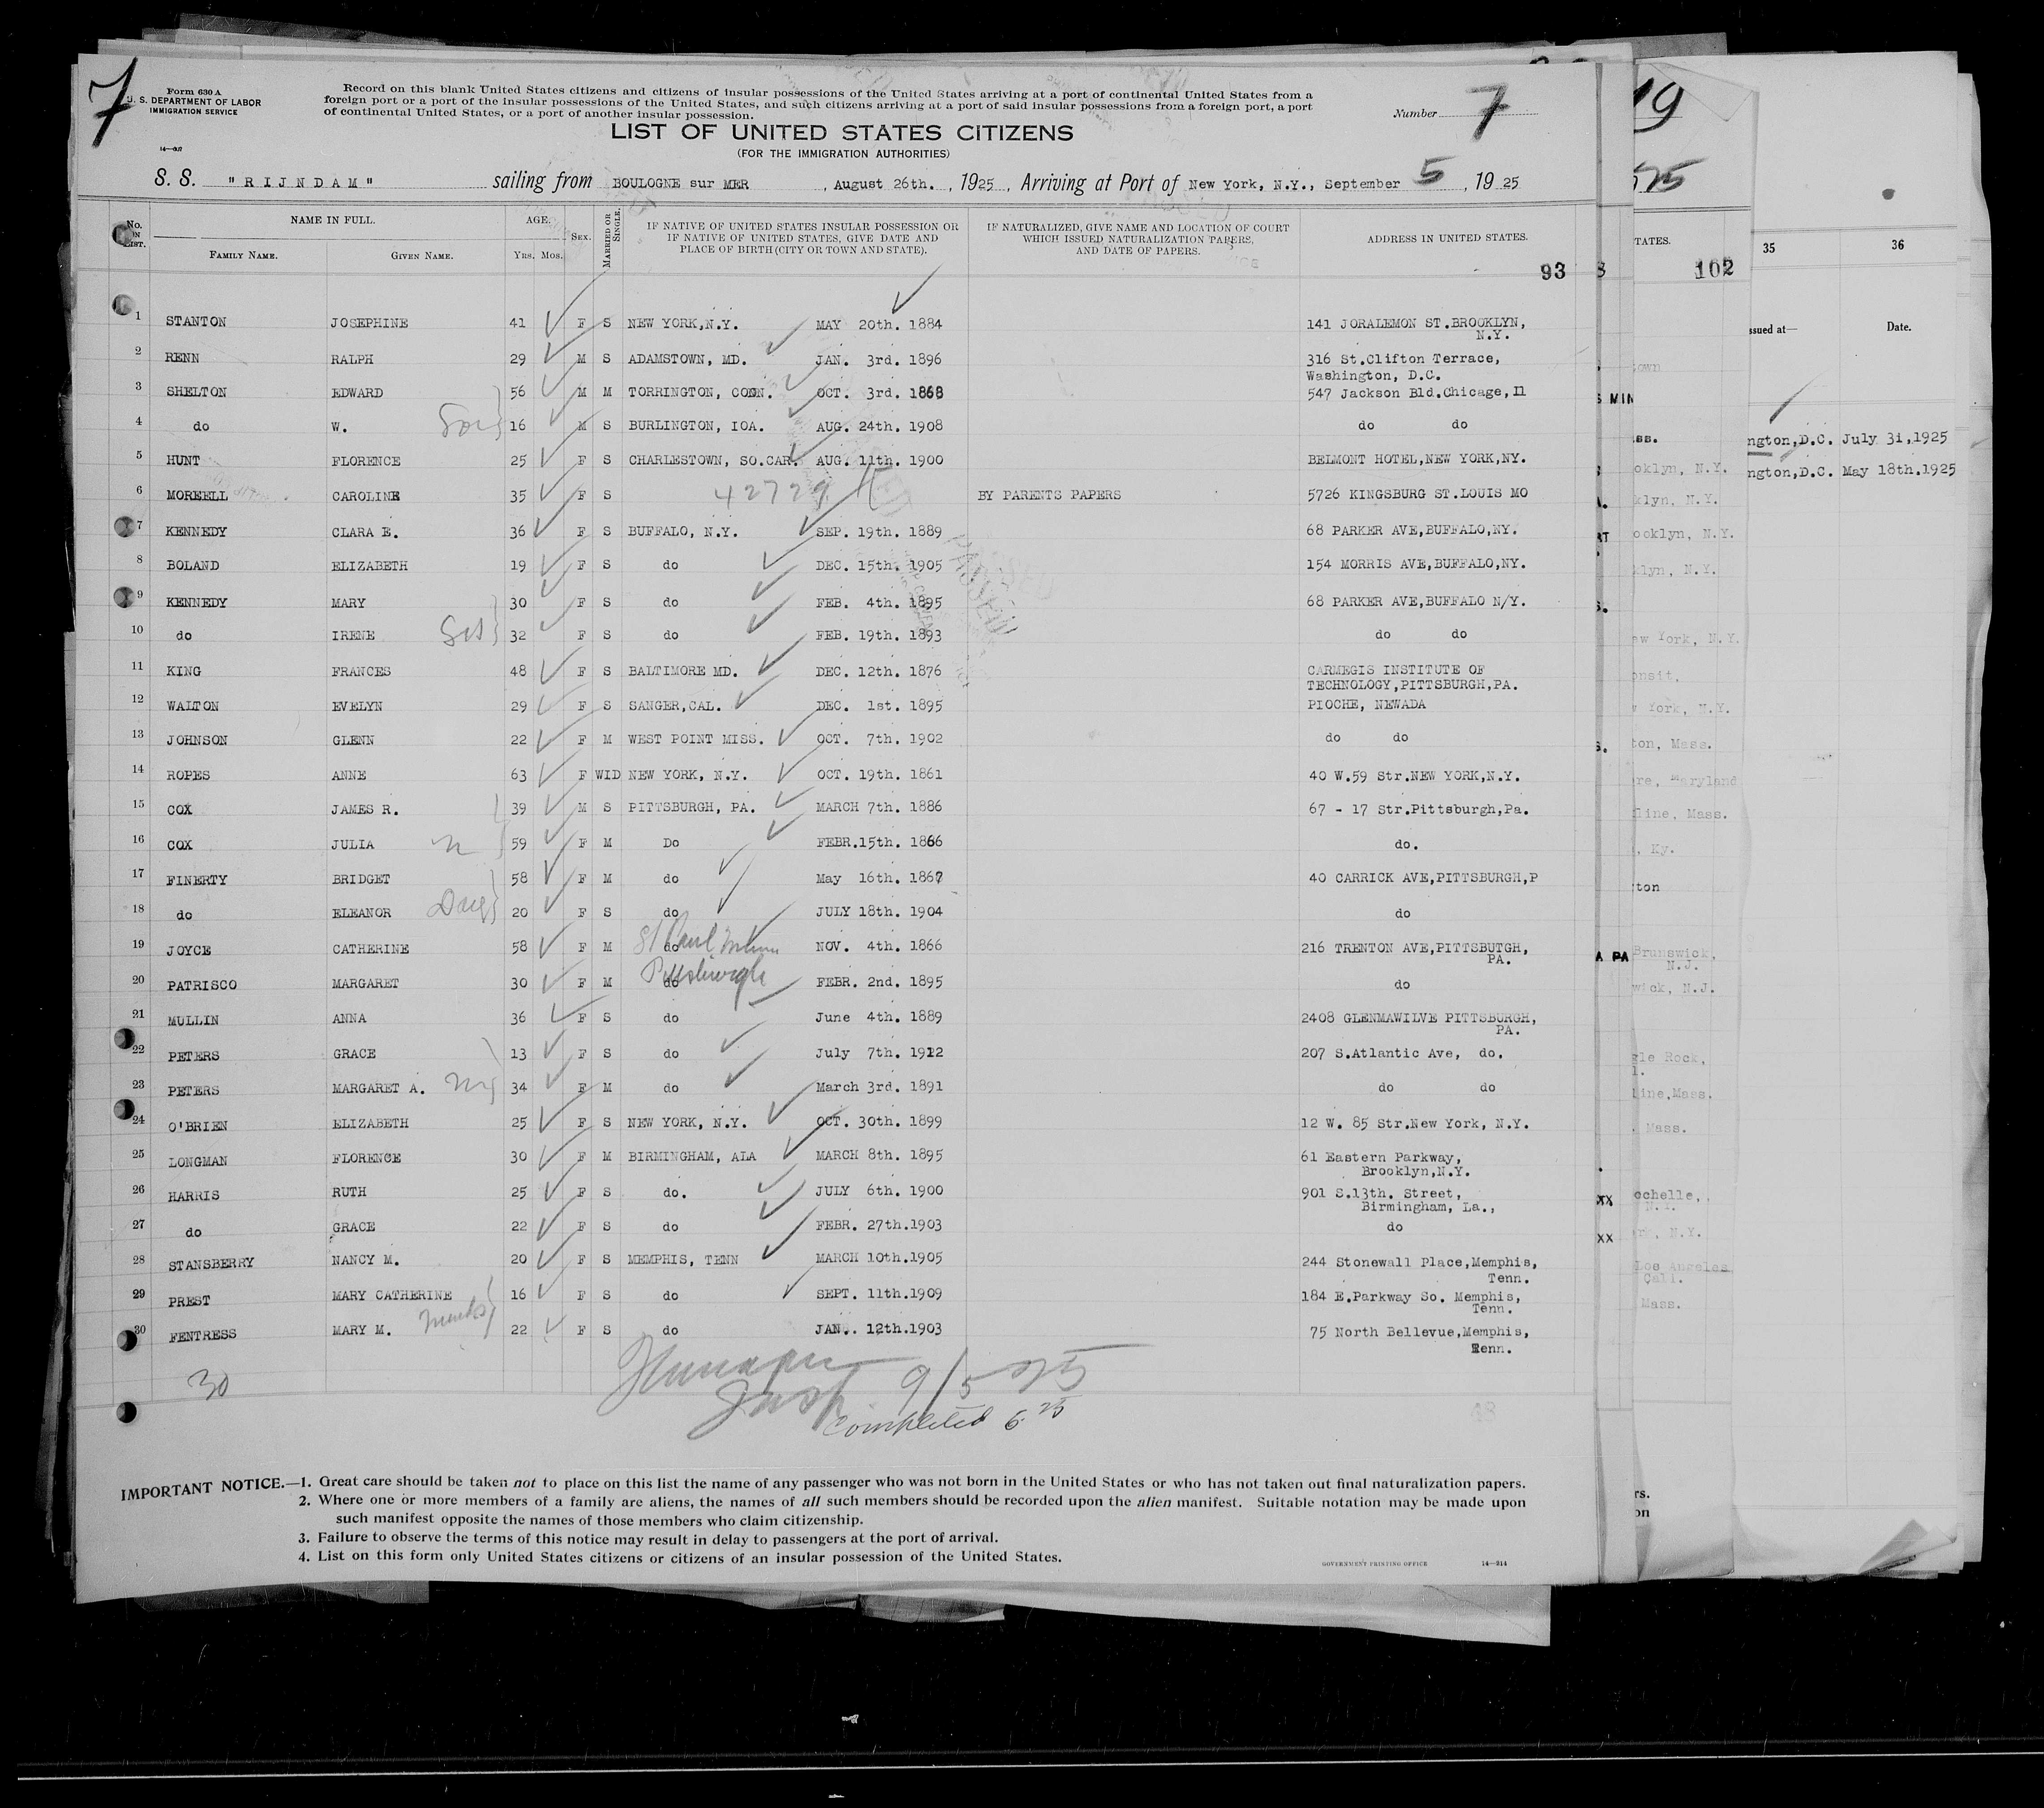 7
Form 630 A
U. S. DEPARTMENT OF LABOR
IMMIGRATION SERVICE
14—
Record on this blank United States citizens and citizens of insular possessions of the United States arriving at a port of continental United States from a
foreign port or a port of the insular possessions of the United States, and such citizens arriving at a port of said insular possessions from a foreign port, a port
of continental United States, or a port of another insular possession.
Number 7
LIST OF UNITED STATES CITIZENS
(FOR THE IMMIGRATION AUTHORITIES)
S. S. "RIJNDAM" sailing from BOULOGNE sur MER, August 26th., 1925, Arriving at Port of New York, N.Y., September 5, 1925
No. ON LIST. NAME IN FULL. FAMILY NAME. GIVEN NAME. AGE. Yrs. Mos. SEX. MARRIED OR SINGLE. IF NATIVE OF UNITED STATES INSULAR POSSESSION OR IF NATIVE OF UNITED STATES, GIVE DATE AND PLACE OF BIRTH (CITY OR TOWN AND STATE). IF NATURALIZED, GIVE NAME AND LOCATION OF COURT WHICH ISSUED NATURALIZATION PAPERS, AND DATE OF PAPERS. ADDRESS IN UNITED STATES.
93
1 STANTON JOSEPHINE 41 F S NEW YORK,N.Y. MAY 20th. 1884 141 JORALEMON ST.BROOKLYN,
N.Y.
2 RENN RALPH 29 M S ADAMSTOWN, MD. JAN. 3rd. 1896 316 St.Clifton Terrace,
Washington, D.C.
3 SHELTON EDWARD 56 M M TORRINGTON, CONN. OCT. 3rd. 1868 547 Jackson Bld.Chicage,Il
4 do W. Son 16 M S BURLINGTON, IOA. AUG. 24th. 1908 do do
5 HUNT FLORENCE 25 F S CHARLESTOWN, SO.CAR. AUG. 11th. 1900 BELMONT HOTEL,NEW YORK,NY.
6 MORELL CAROLINE 35 F S 42729 BY PARENTS PAPERS 5726 KINGSBURG ST.LOUIS MO
7 KENNEDY CLARA E. 36 F S BUFFALO, N.Y. SEP. 19th. 1889 68 PARKER AVE,BUFFALO,NY.
8 BOLAND ELIZABETH 19 F S do DEC. 15th. 1905 154 MORRIS AVE,BUFFALO,NY.
9 KENNEDY MARY 30 F S do FEB. 4th. 1895 68 PARKER AVE,BUFFALO N/Y.
10 do IRENE Sis 32 F S do FEB. 19th. 1893 do do
11 KING FRANCES 48 F S BALTIMORE MD. DEC. 12th. 1876 CARMEGIS INSTITUTE OF
TECHNOLOGY,PITTSBURGH,PA.
12 WALTON EVELYN 29 F S SANGER,CAL. DEC. 1st. 1895 PIOCHE, NEWADA
13 JOHNSON GLENN 22 F M WEST POINT MISS. OCT. 7th. 1902 do do
14 ROPES ANNE 63 F WID NEW YORK, N.Y. OCT. 19th. 1861 40 W.59 Str.NEW YORK,N.Y.
15 COX JAMES R. 39 M S PITTSBURGH, PA. MARCH 7th. 1886 67 - 17 Str.Pittsburgh,Pa.
16 COX JULIA 59 F M Do FEBR.15th. 1866 do.
17 FINERTY BRIDGET 58 F M do May 16th. 1867 40 CARRICK AVE,PITTSBURGH,P
18 do ELEANOR Daug 20 F S do JULY 18th. 1904 do
19 JOYCE CATHERINE 58 F M do St Paul Minn NOV. 4th. 1866 216 TRENTON AVE,PITTSBUTGH,
PA.
20 PATRISCO MARGARET 30 F M do Pittsburgh FEBR. 2nd. 1895 do
21 MULLIN ANNA 36 F S do June 4th. 1889 2408 GLENMAWILVE PITTSBURGH,
PA.
22 PETERS GRACE 13 F S do July 7th. 1912 207 S.Atlantic Ave, do.
23 PETERS MARGARET A. 34 F M do March 3rd. 1891 do do
24 O'BRIEN ELIZABETH 25 F S NEW YORK, N.Y. OCT. 30th. 1899 12 W. 85 Str.New York, N.Y.
25 LONGMAN FLORENCE 30 F M BIRMINGHAM, ALA MARCH 8th. 1895 61 Eastern Parkway,
Brooklyn,N.Y.
26 HARRIS RUTH 25 F S do. JULY 6th. 1900 901 S.13th. Street,
Birmingham, La.,
27 do GRACE 22 F S do FEBR. 27th.1903 do
28 STANSBERRY NANCY M. 20 F S MEMPHIS, TENN MARCH 10th.1905 244 Stonewall Place,Memphis,
Tenn.
29 PREST MARY CATHERINE 16 F S do SEPT. 11th.1909 184 E.Parkway So. Memphis,
Tenn.
30 FENTRESS MARY M. 22 F S do JAN.. 12th.1903 75 North Bellevue,Memphis,
Tenn.
30
Insp. 9/5 25
Completed 6 25
IMPORTANT NOTICE.—1. Great care should be taken not to place on this list the name of any passenger who was not born in the United States or who has not taken out final naturalization papers.
2. Where one or more members of a family are aliens, the names of all such members should be recorded upon the alien manifest. Suitable notation may be made upon
such manifest opposite the names of those members who claim citizenship.
3. Failure to observe the terms of this notice may result in delay to passengers at the port of arrival.
4. List on this form only United States citizens or citizens of an insular possession of the United States.
GOVERNMENT PRINTING OFFICE 14—314
19
TATES.
102
35 36
ssued at— Date.
ngton,D.C. July 31,1925
ngton,D.C. May 18th.1925
oklyn, N.Y.
klyn, N.Y.
ooklyn, N.Y.
klyn, N.Y.
ew York, N.Y.
onsit,
w York, N.Y.
ton, Mass.
re, Maryland
line, Mass.
, Ky.
ton
Brunswick,
N.J.
wick, N.J.
gle Rock,
line,Mass.
Mass.
ochelle,
N.Y.
Los Angeles
Cali.
Mass.